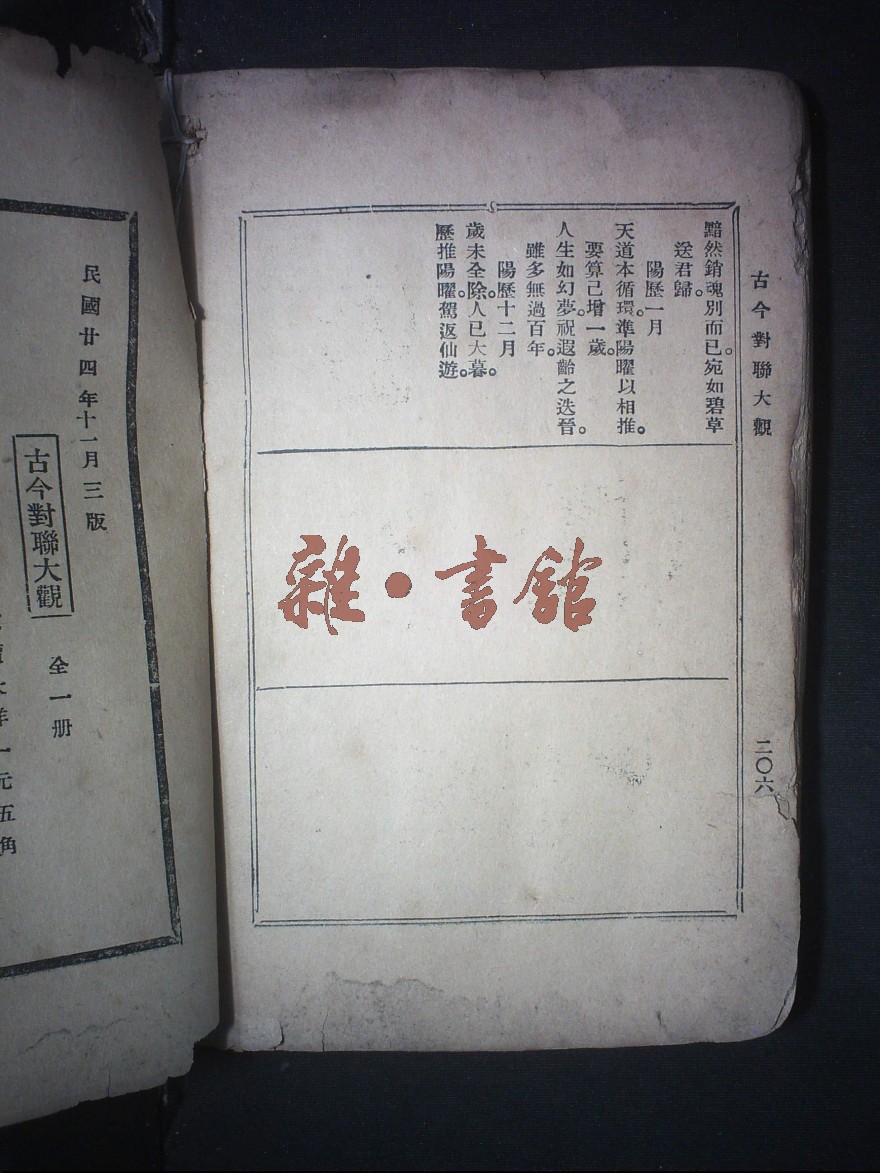 古今對聯大觀
黯然銷魂別而已。宛如碧草
送君歸。
陽歷一月
天道本循環。準陽曜以相推。
要算已增一歲。
人生如幻夢。祝遐齡之迭晉。
雖多無過百年。
陽歷十二月
歲未全除。人已大暮。
歷推陽曜。駕返仙遊。
二〇六
雜•書館
民國廿四年十一月三版
古今對聯大觀 全一册
一元五角